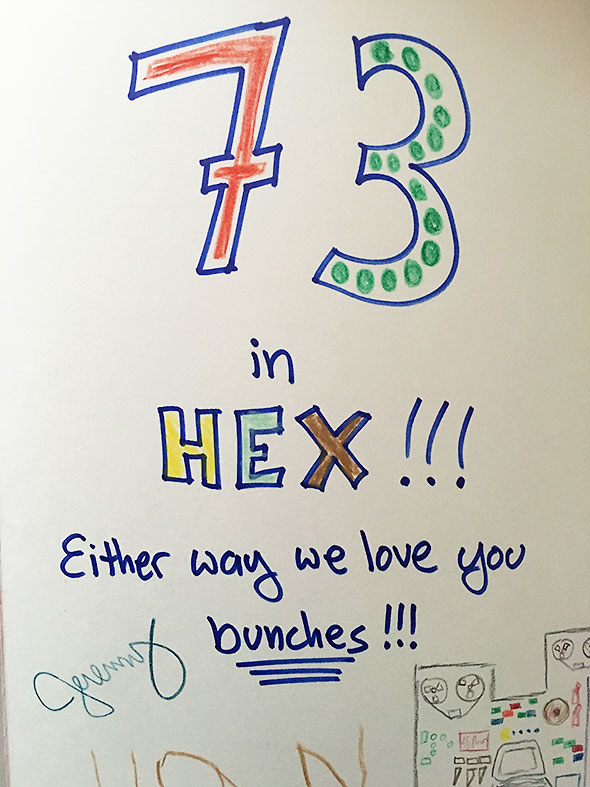 73
in
HEX!!!
Either way we love you
bunches!!!
Jeremy